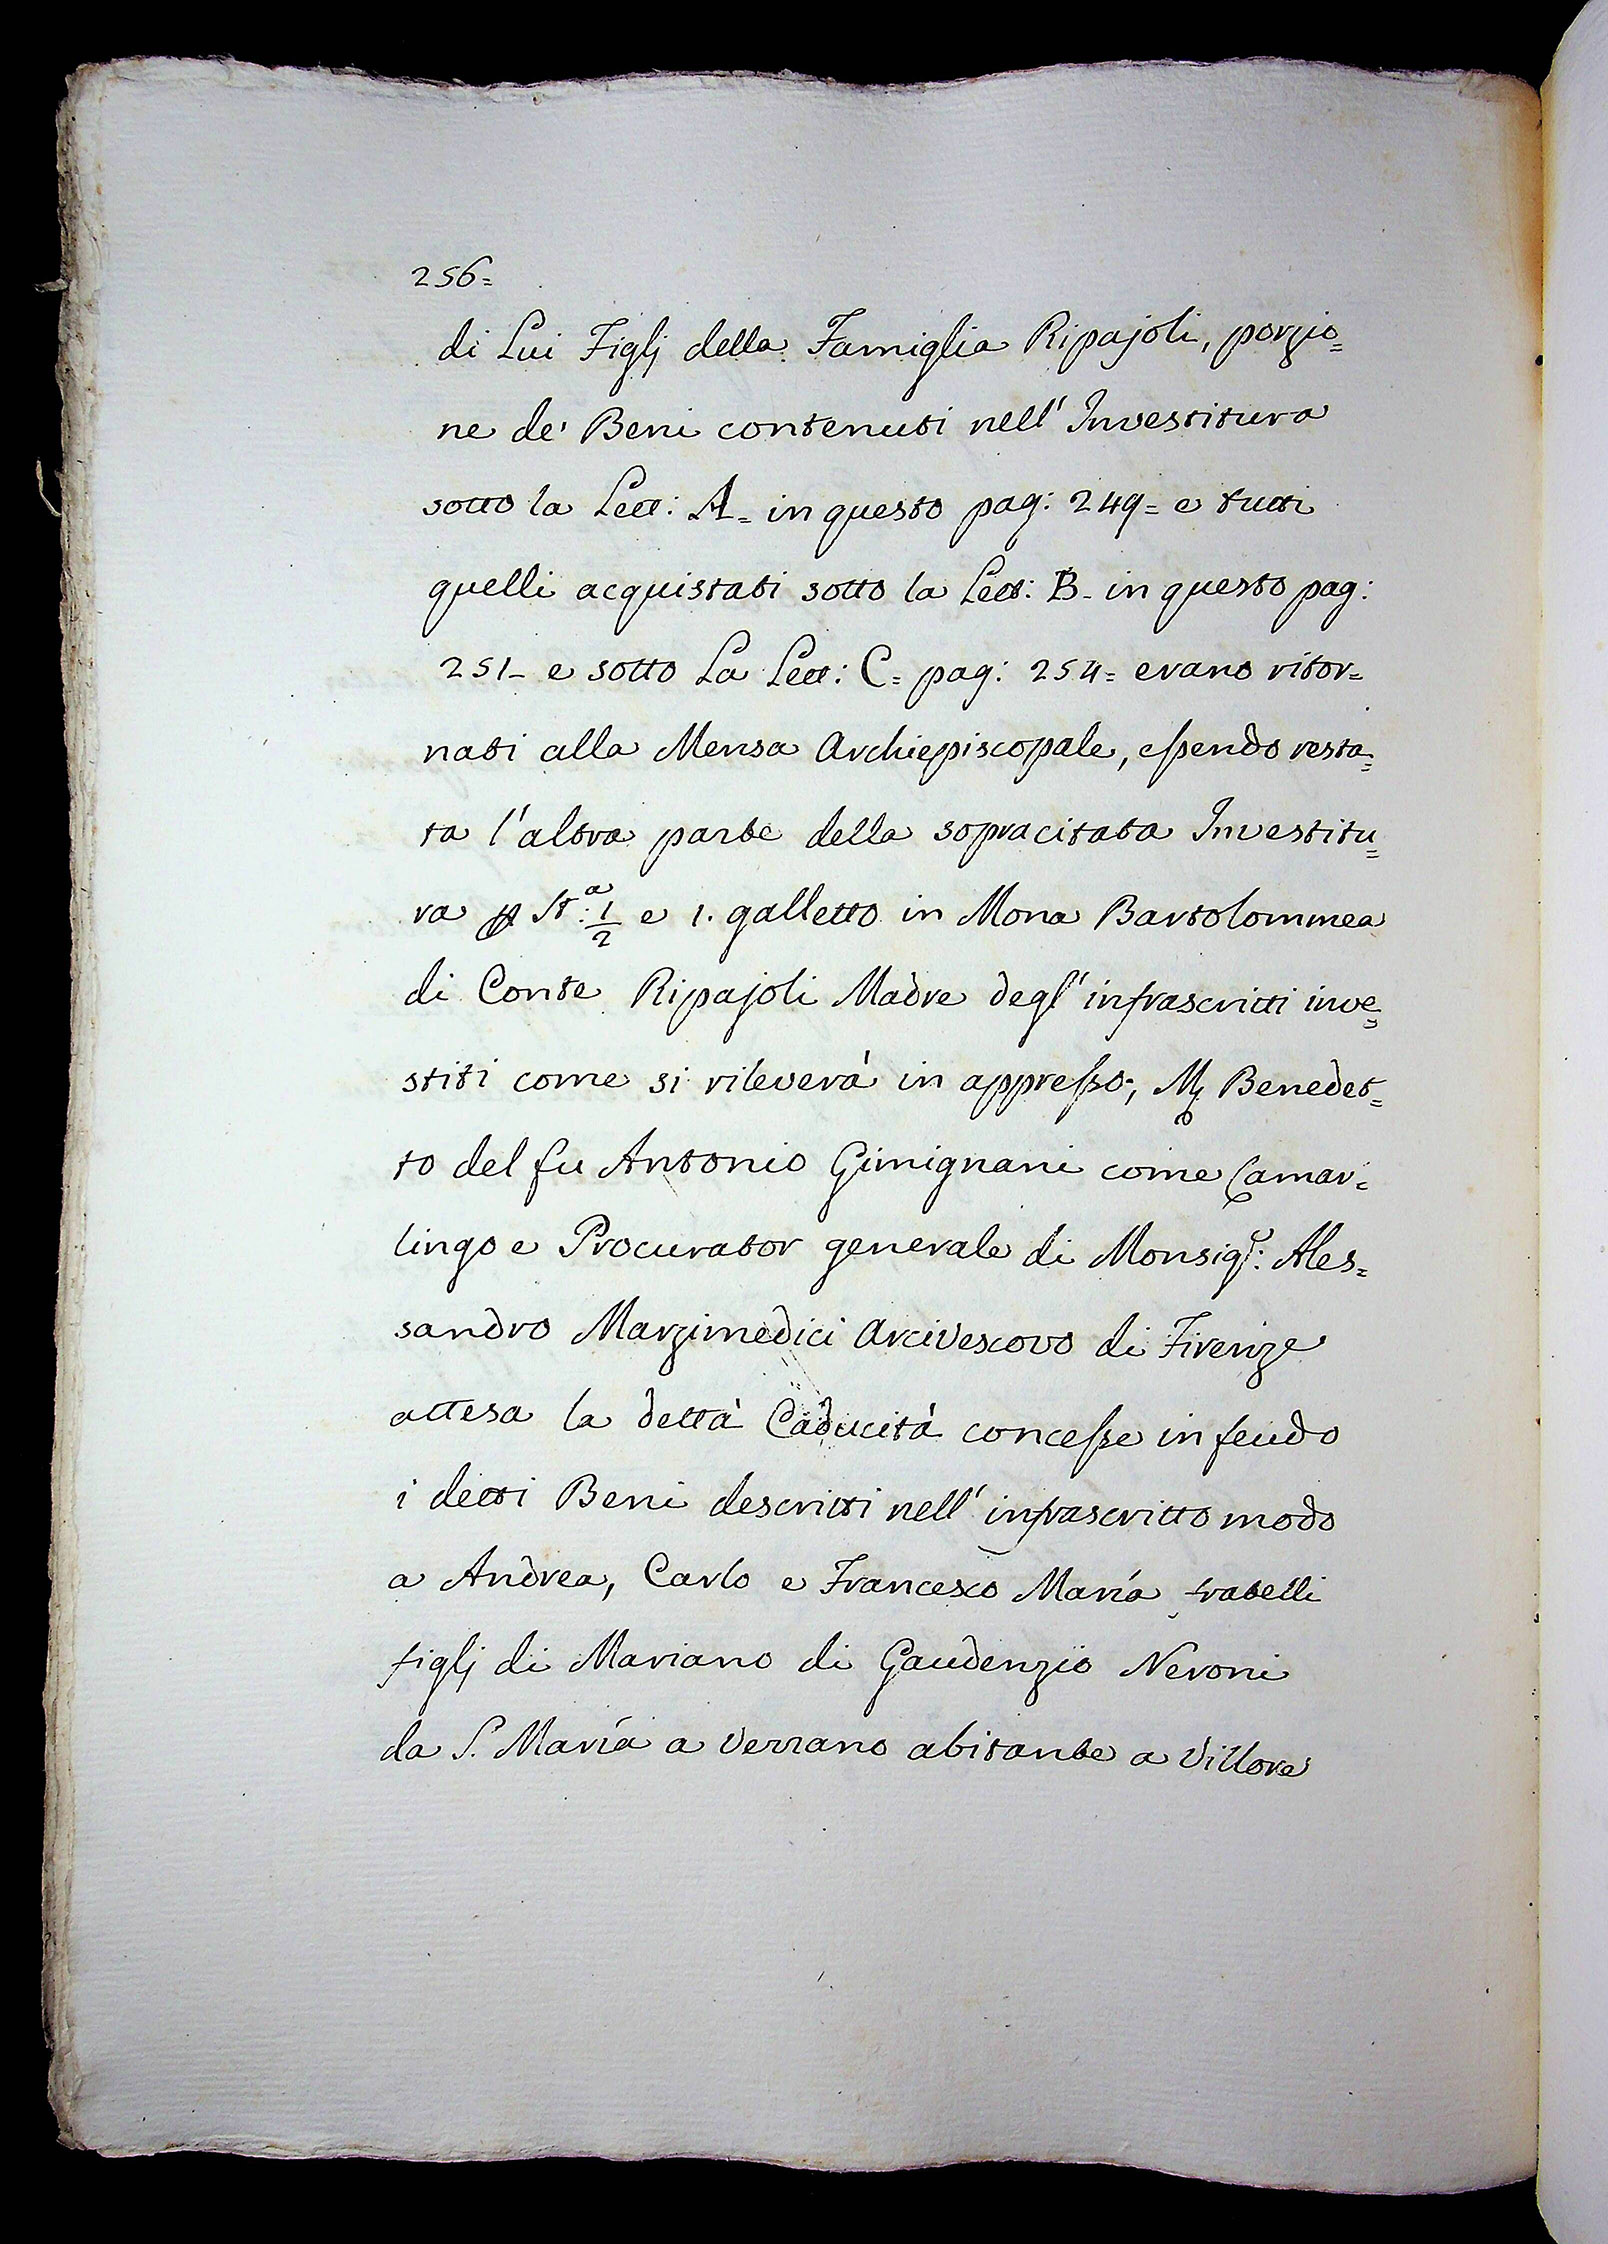 256=
di Lui Figlj della Famiglia Ripajoli, porzio=
ne de' Beni contenuti nell' Investitura
sotto la Lett: A= in questo pag: 249= e tutti
quelli acquistati sotto la Lett: B- in questo pag:
251- e sotto La Lett: C= pag: 254= erano ritor=
nati alla Mensa Archiepiscopale, essendo resta=
ta l'altra parte della sopracitata Investitu=
ra p St:ª 1/2 e 1. galletto in Mona Bartolommea
di Conte Ripajoli Madre degl' infrascritti inve=
stiti come si rileverà in appresso; Benedet=
to del fu Antonio Gimignani come Camar=
lingo e Procurator generale di Monsigr: Ales=
sandro Marzimedici Arcivescovo di Firenze
attesa la dettà Caducità concesse in feudo
i detti Beni descritti nell' infrascritto modo
a Andrea, Carlo e Francesco María fratelli
figlj di Mariano di Gaudenzio Neroni
da S. María a Verzano abitante a Villore